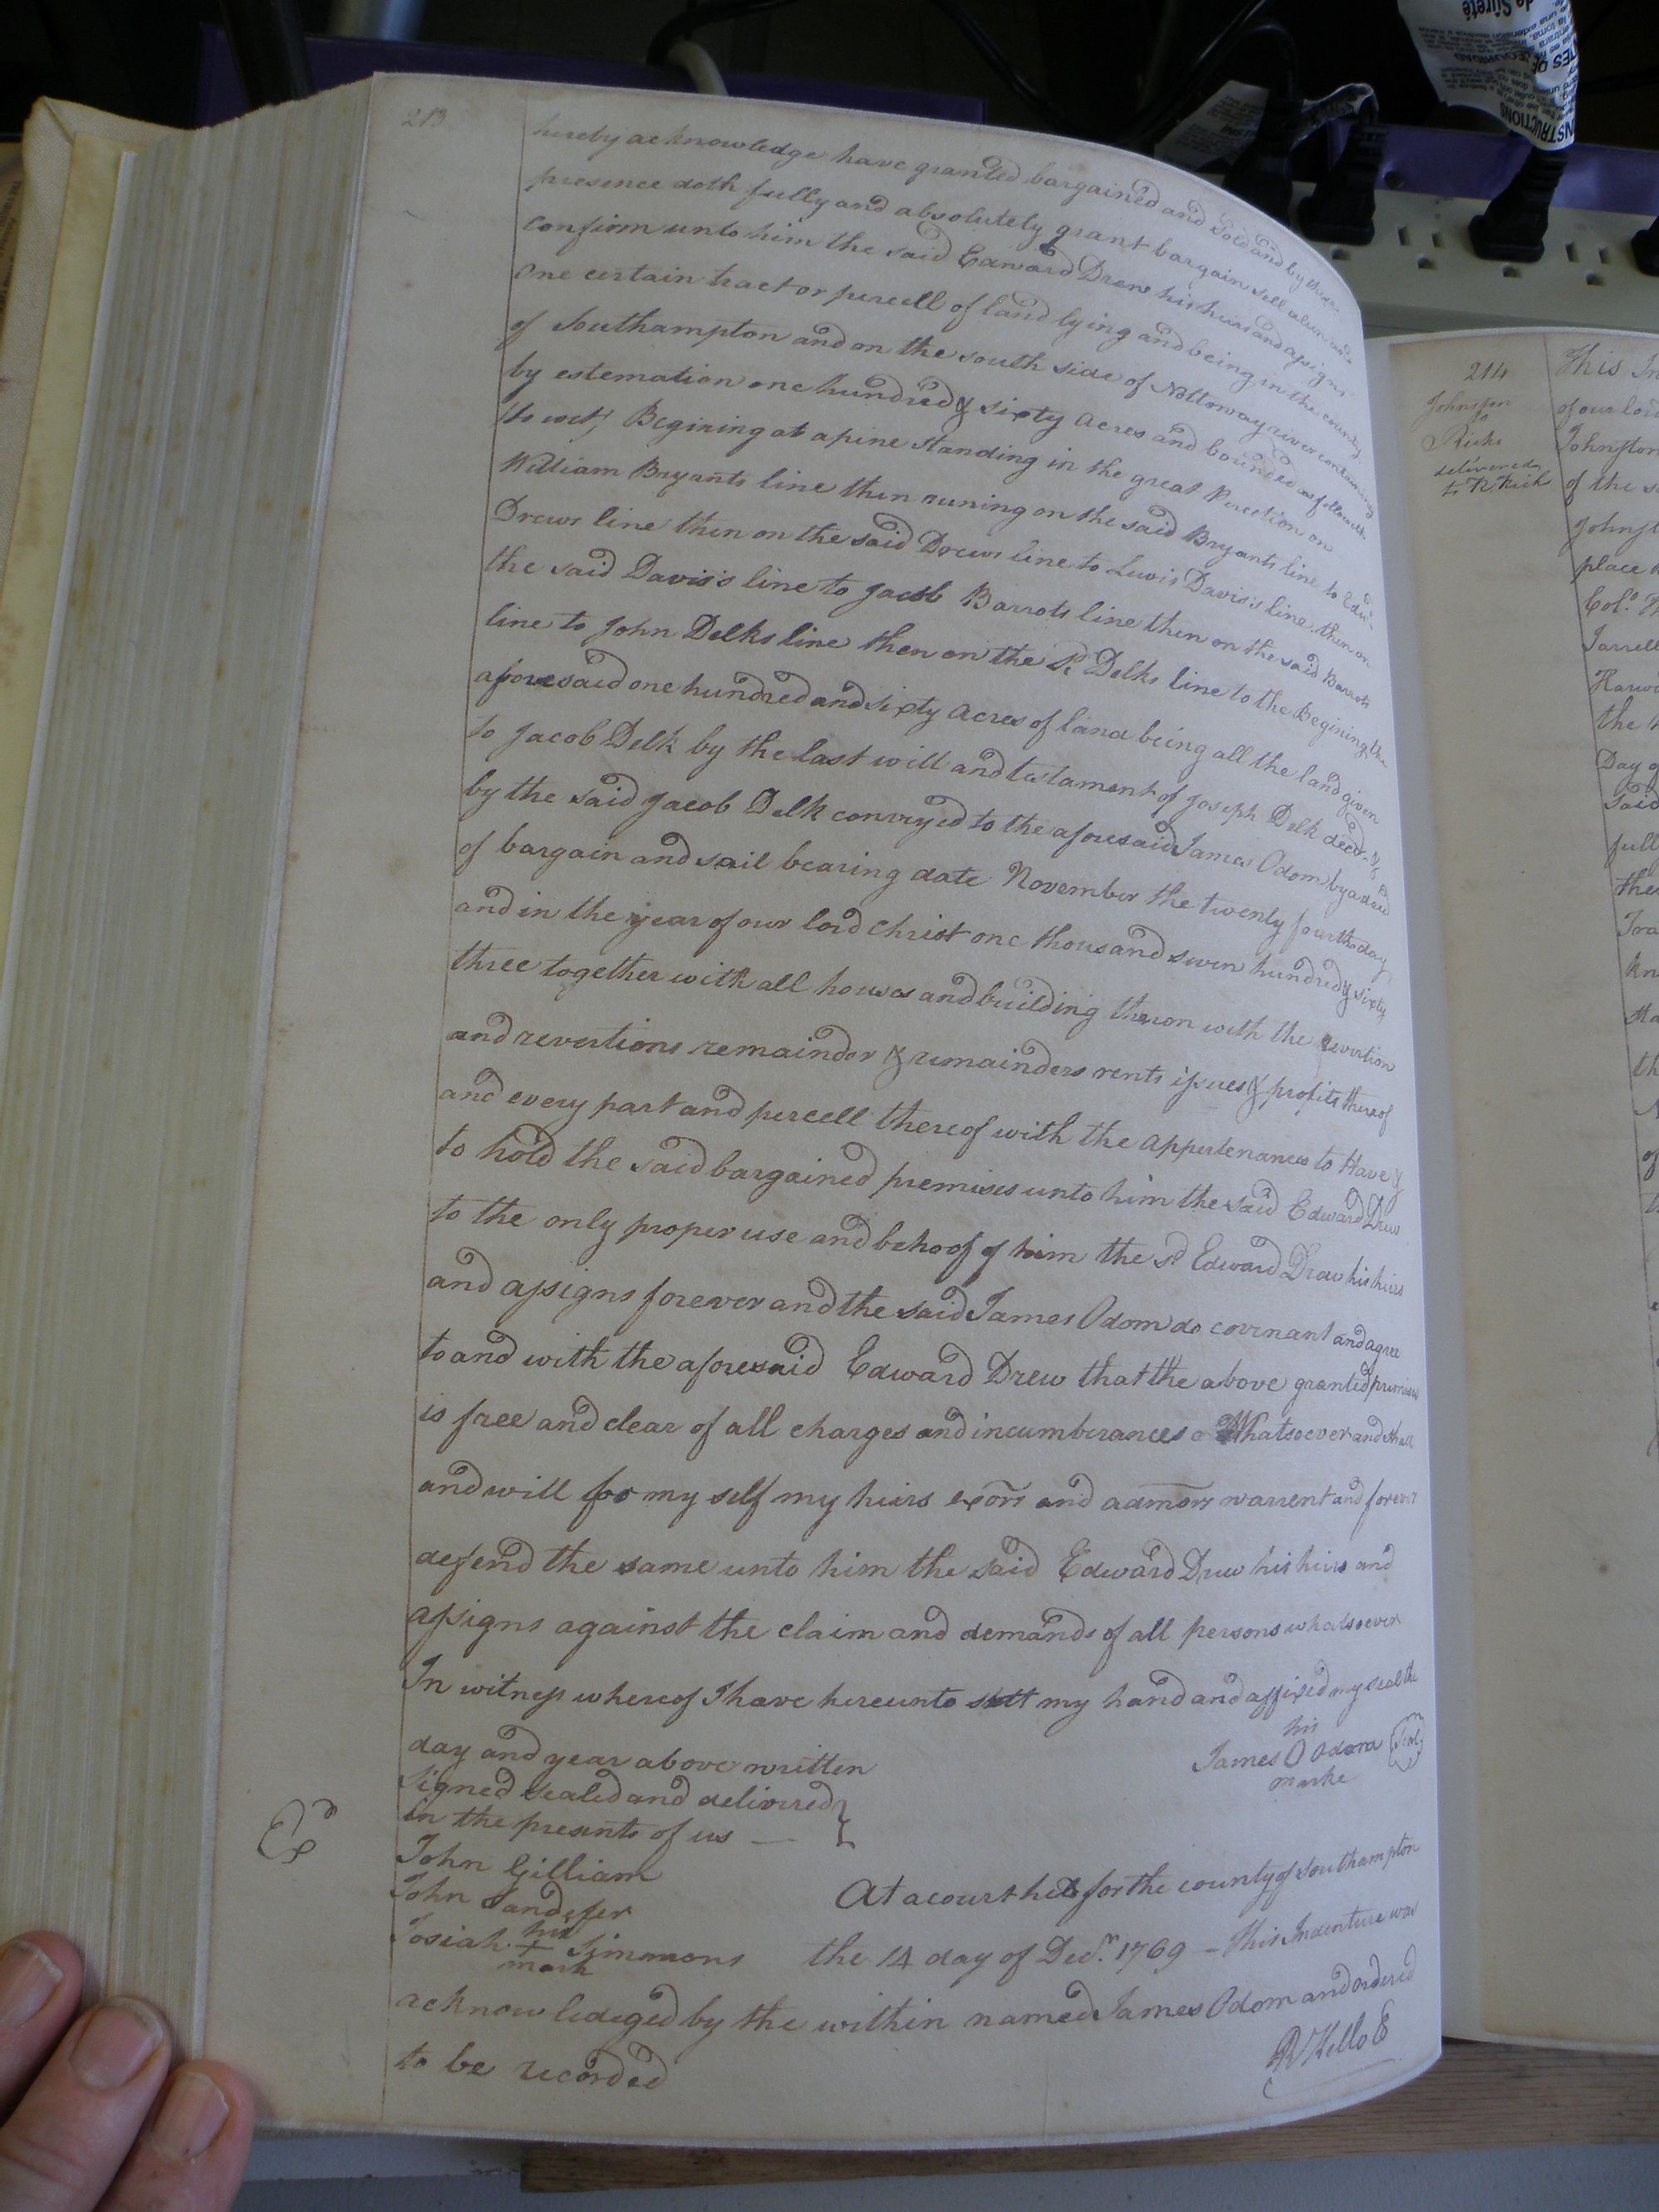 213
hereby acknowledge have granted bargained and Sold and by these
presence doth fully and absolutely grant bargain sell alien and
confirm unto him the said Edward Drew his heirs and assigns
One certain tract or percell of land lying and being in the county
of Southampton and on the south side of Nottoway river containing
by estemation one hundred & sixty acres and bounded as followeth
to wit, Begining at a pine standing in the great Percetion on
William Bryants line then runing on the said Bryants line to Edw.
Drews line then on the said Drews line to Lewis Davis's line then on
the said Davis's line to Jacob Barrots line then on the said Barrots
line to John Delks line then on the sd Delks line to the Begining the
aforesaid one hundred and sixty acres of land being all the land given
to Jacob Delk by the last will and testament of Joseph Delk decd. &
by the said Jacob Delk conveyed to the aforesaid James Odom by a deed
of bargain and sail bearing date November the twenty fourth day
and in the year of our lord Christ one thousand seven hundred & sixty
three together with all houses and building thereon with the revertion
and revertions remainder & remainders rents issues & profits thereof
and every part and percell thereof with the appertenances to Have &
to hold the said bargained premises unto him the said Edward Drew
to the only proper use and behoof of him the sd Edward Drew his heirs
and assigns forever and the said James Odom do covenant and agree
to and with the aforesaid Edward Drew that the above granted premises
is free and clear of all charges and incumberances Whatsoever and shall
and will for my self my heirs exors and admors warrent and forever
defend the same unto him the said Edward Drew his heirs and
assigns against the claim and demands of all persons whatsoever
In witness whereof I have hereunto sett my hand and affixed my seal the
day and year above written
his
James O Odom Seal
marke
Signed sealed and delivered
in the presents of us —
John Gilliam
John Sandefer
his
Josiah + Simmons
mark
At a court held for the county of Southampton
the 14 day of Decr. 1769 – This Indenture was
acknowledeged by the within named James Odom and ordered
to be recorded
R Kello C
214
Johnston
to
Ricks
delivered
to R. Rick
This In
of our lord
Johnston
of the s
Johnst
place
Col.o
Jarrell
Harw
the
Day of
said
full
the
Tra
kn
Ma
th
of
de Sûreté
INSTRUCTIONS